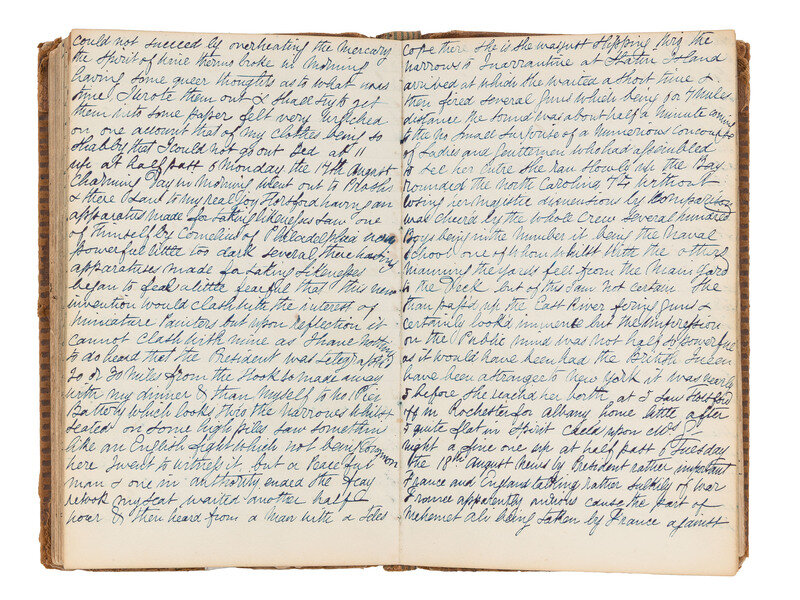 could not succed by overheating the Mercury
the spirit of wine therms broke in morning
having some queer thoughts as to what was
time I wrote them out & shall try to get
them into some paper felt very wretched
on one account that of my clothes being so
shabby that I could not go out bed at 11
up at half past 6 Monday the 17th August
Charming Day in Morning went out to
& there I saw to my real Joy Horsford having an
apparatus made for taking likenesses saw one
of himself by Cornelius of Philadelphia
powerful little too dark several there having
apparatuses made for taking likenesses
began to feel a little fearful that this new
invention would clash with the interest of
Miniature Painters but upon reflection it
cannot clash with mine as I have nothing
to do heard that the President was telegraphed
20 or 30 miles from the Hook so made away
with my dinner & than myself to no 1 the
Battery which looks thro the narrows whilst
seated on some high piles saw something
like an English fight which not being common
here I went to witness it but a Peaceful
man & one in authority ended the fray
retook my seat waited another half
hour & then heard from a man with a Teles
cope there she is she was just stepping thro the
narrows to Quarrantine at Statin Island
arrived at which she waited a short time &
then fired several Guns which being 6 or 7 miles
distance the sound was about half a minute coming
to the no small surprise of a numerious concourse
of Ladies and Gentlemen who had assembled
to see her entre She ran slowly up the Bay
rounded the North Carolina 74 without
losing her majestic dimensions by comparison
was cheerd by the whole crew several hundred
Boys being in the number it being the Naval
School one of whom whilst with the others
manning the yards fell from the Main Yard
to the Deck but of this I am not certain She
than passd up the East River firing Guns &
certainly lookd immence but the impression
on the Public mind was not half so powerful
as it would have been had the British Queen
have been a stranger to New York it was nearly
5 before she reachd her berth at 5 Saw Horsford
off in Rochester for Albany home little after
5 quite flat in spirit calld upon
night a fine one up at half past 6 Tuesday
the 18th August news by President rather important
France and England talking rather sulkily of war
France apparently anxious cause the part of
Mehemet Ali being taken by France against